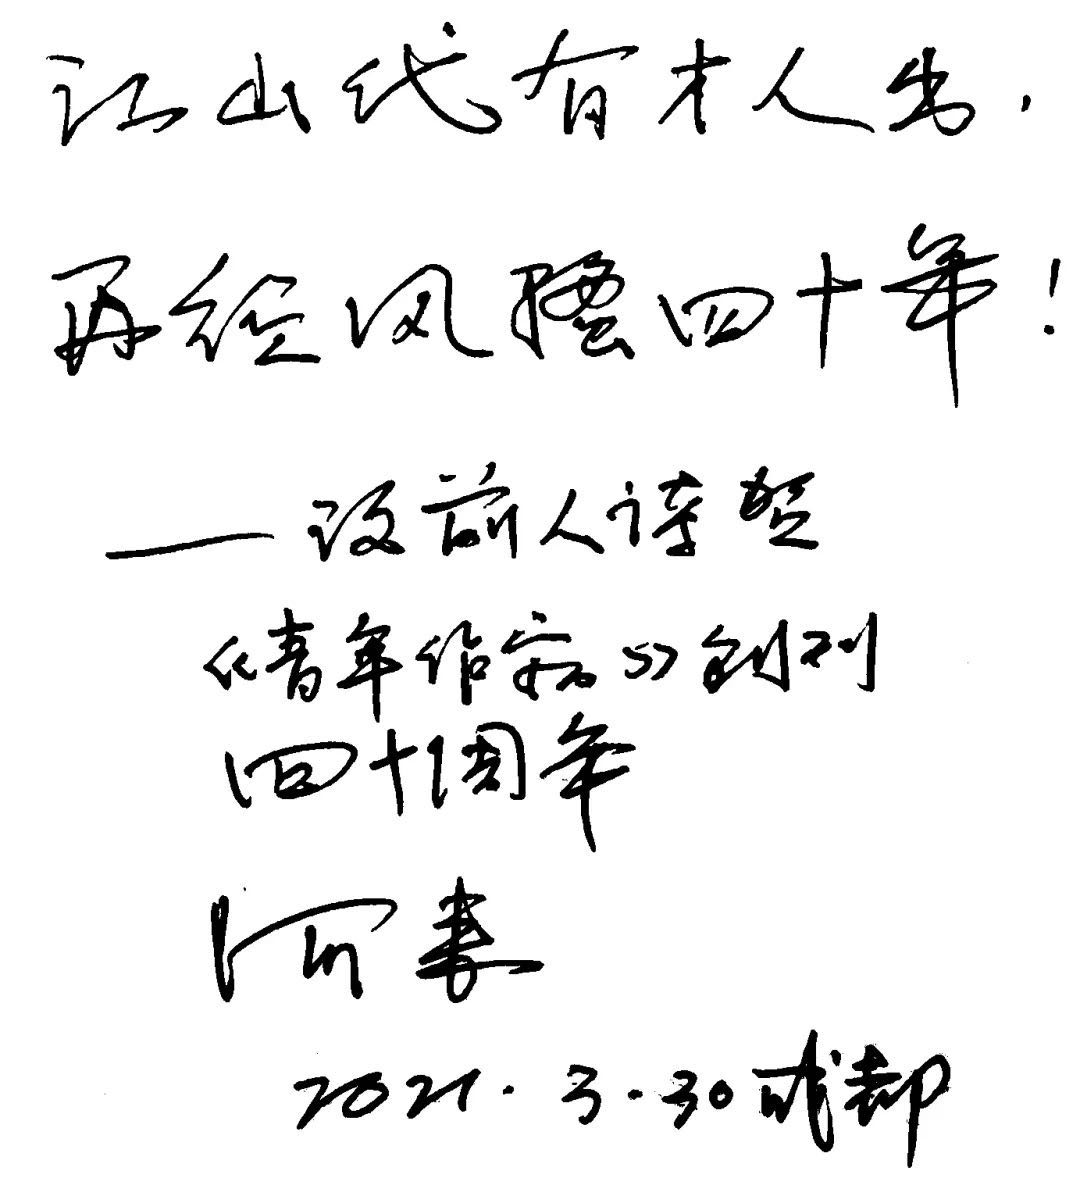 江山代有才人出，
再经风骚四十年！
——改前人诗贺
《青年作家》创刊
四十周年
阿来
2021.3.30成都